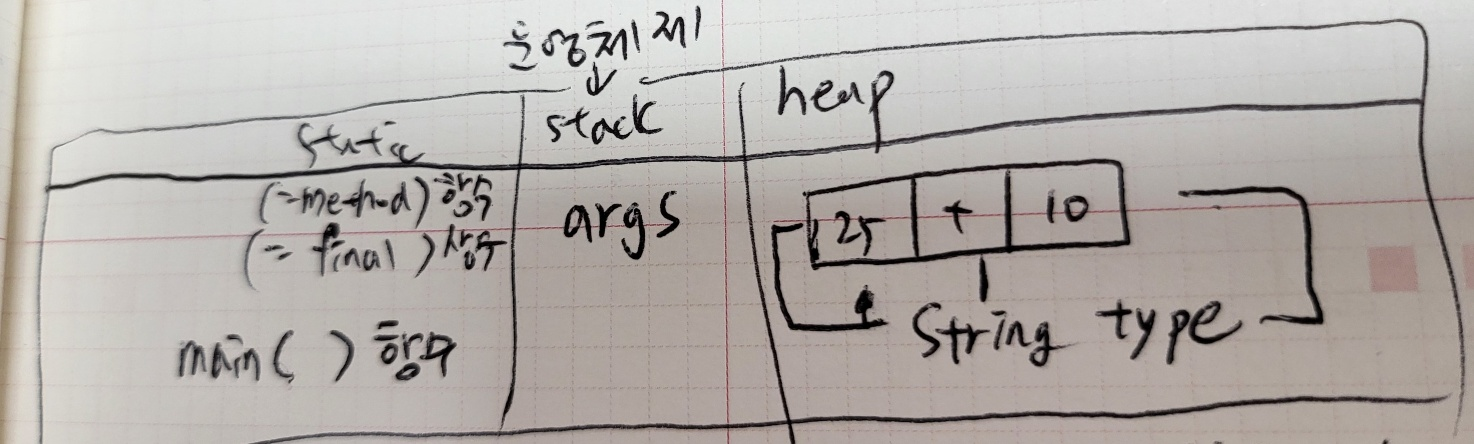 운영체제
static
stack
heap
(=method) 함수
(= final) 상수
args
25 + 10
String type
main( ) 함수